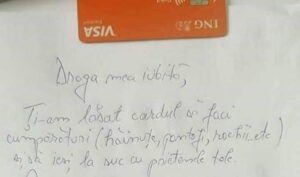 VISA
ING
Draga mea iubită,
Ți-am lăsat cardul să faci
cumpărături (hăinuțe, pantofi, rochii..etc)
și să ieși la suc cu prietenele tale.